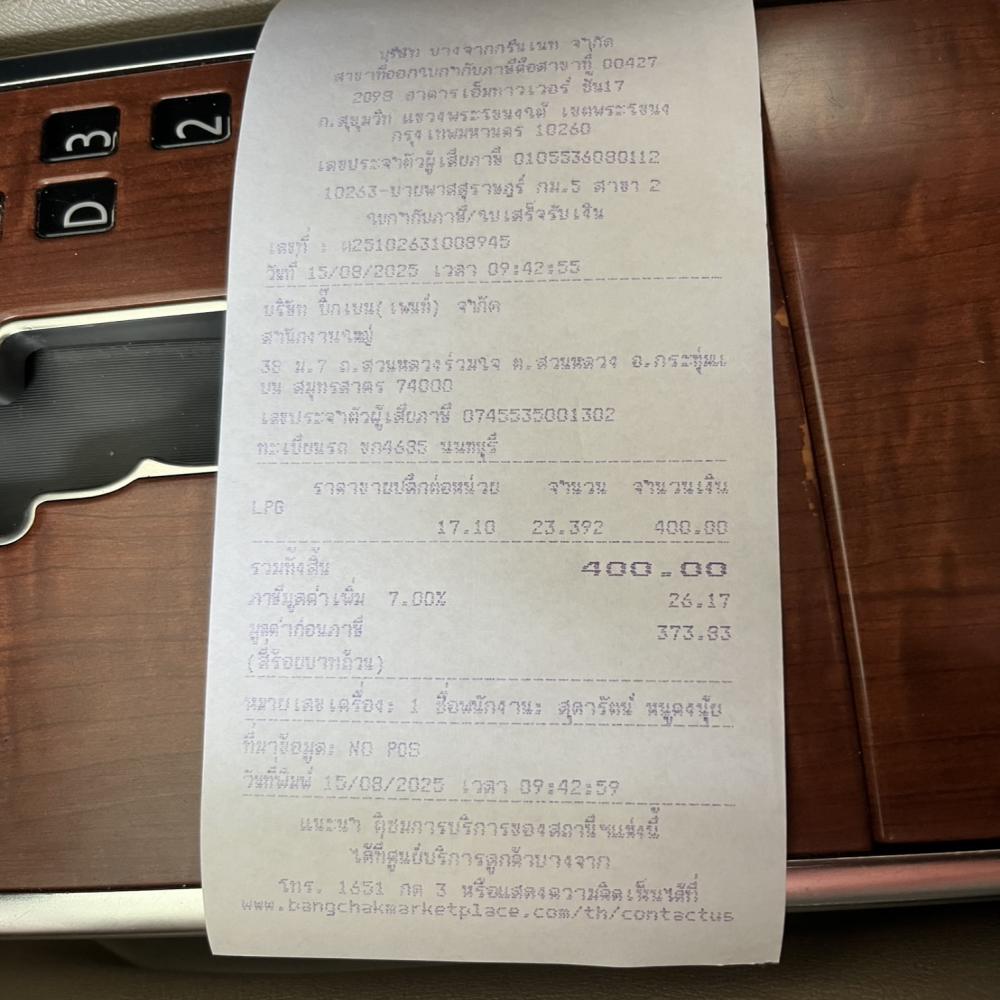 3
2
D
บริษัท บางจากกรีนเนท จำกัด
สาขาที่ออกใบกำกับภาษีคือสาขาที่ 00427
2098 อาคารเอ็มทาวเวอร์ ชั้น17
ถ.สุขุมวิท แขวงพระโขนงใต้ เขตพระโขนง
กรุงเทพมหานคร 10260
เลขประจำตัวผู้เสียภาษี 0105536080112
10263-บายพาสสุราษฎร์ กม.5 สาขา 2
ใบกำกับภาษี/ใบเสร็จรับเงิน
เลขที่ : 25102631008945
วันที่ 15/08/2025 เวลา 09:42:55
บริษัท บิ๊กเบน(เพนท์) จำกัด
สำนักงานใหญ่
38 ม.7 ถ.สวนหลวงร่วมใจ ต.สวนหลวง อ.กระทุ่มแ
บน สมุทรสาคร 74000
เลขประจำตัวผู้เสียภาษี 0745535001302
ทะเบียนรถ ขก4685 นนทบุรี
ราคาขายปลีกต่อหน่วย จำนวน จำนวนเงิน
LPG
17.10 23.392 400.00
รวมทั้งสิ้น 400.00
ภาษีมูลค่าเพิ่ม 7.00% 26.17
มูลค่าก่อนภาษี 373.83
(สี่ร้อยบาทถ้วน)
หมายเลขเครื่อง: 1 ชื่อพนักงาน: สุดารัตน์ หนูดงนุ้ย
ที่มาข้อมูล: NO POS
วันที่พิมพ์ 15/08/2025 เวลา 09:42:59
แนะนำ ติชมการบริการของสถานีฯแห่งนี้
ได้ที่ศูนย์บริการลูกค้าบางจาก
โทร. 1651 กด 3 หรือแสดงความคิดเห็นได้ที่
www.bangchakmarketplace.com/th/contactus